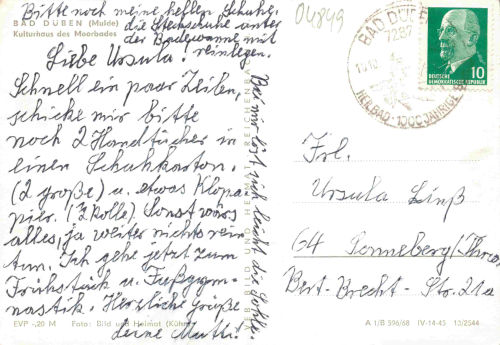 Bitte noch meine hellen Schuhe,
die Stechschuhe unter
der Badewanne mit
reinlegen.
BAD DÜBEN (Mulde)
Kulturhaus des Moorbades
Liebe Ursula!
Schnell ein paar Zeilen,
schicke mir bitte
noch 2 Handtücher in
einen Schuhkarton.
(2 große) u. etwas Klopa-
pier. (½ Rolle). Sonst wärs
alles, ja weiter nichts rein
tun. Ich gehe jetzt zum
Frühstück u. Fußgym-
nastik. Herzliche Grüße
deine Mutti.
Bei mir löst sich leicht die Sohle.
VEB BILD UND HEIMAT REICHENBACH
EVP -,20 M Foto: Bild und Heimat (Kühn)
04849
BAD DÜBEN
7282
HEILBAD · 1000 JÄHRIGE
10
DEUTSCHE
DEMOKRATISCHE
REPUBLIK
Frl.
Ursula Linß
64 Sonneberg/Thür.
Bert-Brecht-Str. 21a
A 1/B 596/68 IV-14-45 13/2544